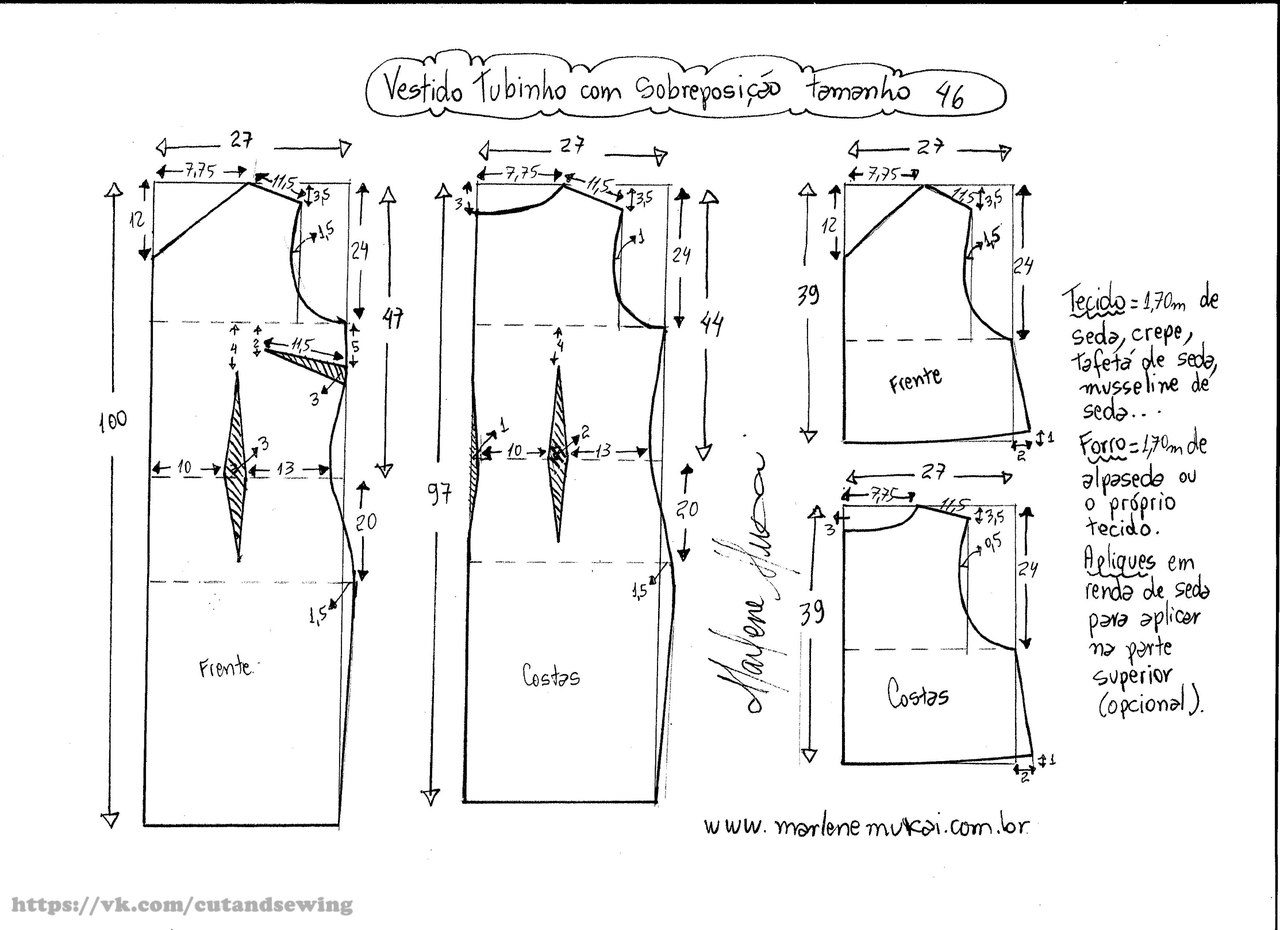 Vestido Tubinho com Sobreposição tamanho 46
27
7,75
11,5
3,5
12
1,5
24
47
4
2
11,5
5
3
100
3
10
13
20
1,5
Frente
27
7,75
11,5
3,5
3
1
24
44
4
1
2
10
13
97
20
1,5
Costas
27
7,75
11,5
3,5
12
1,5
24
39
Frente
1
2
27
7,75
11,5
3,5
3
0,5
24
39
Costas
1
2
Tecido = 1,70m de
seda, crepe,
tafetá de seda,
musseline de
seda...
Forro = 1,70m de
alpaseda ou
o próprio
tecido.
Apliques em
renda de seda
para aplicar
na parte
superior
(opcional).
Marlene Mukai
www.marlenemukai.com.br
https://vk.com/cutandsewing